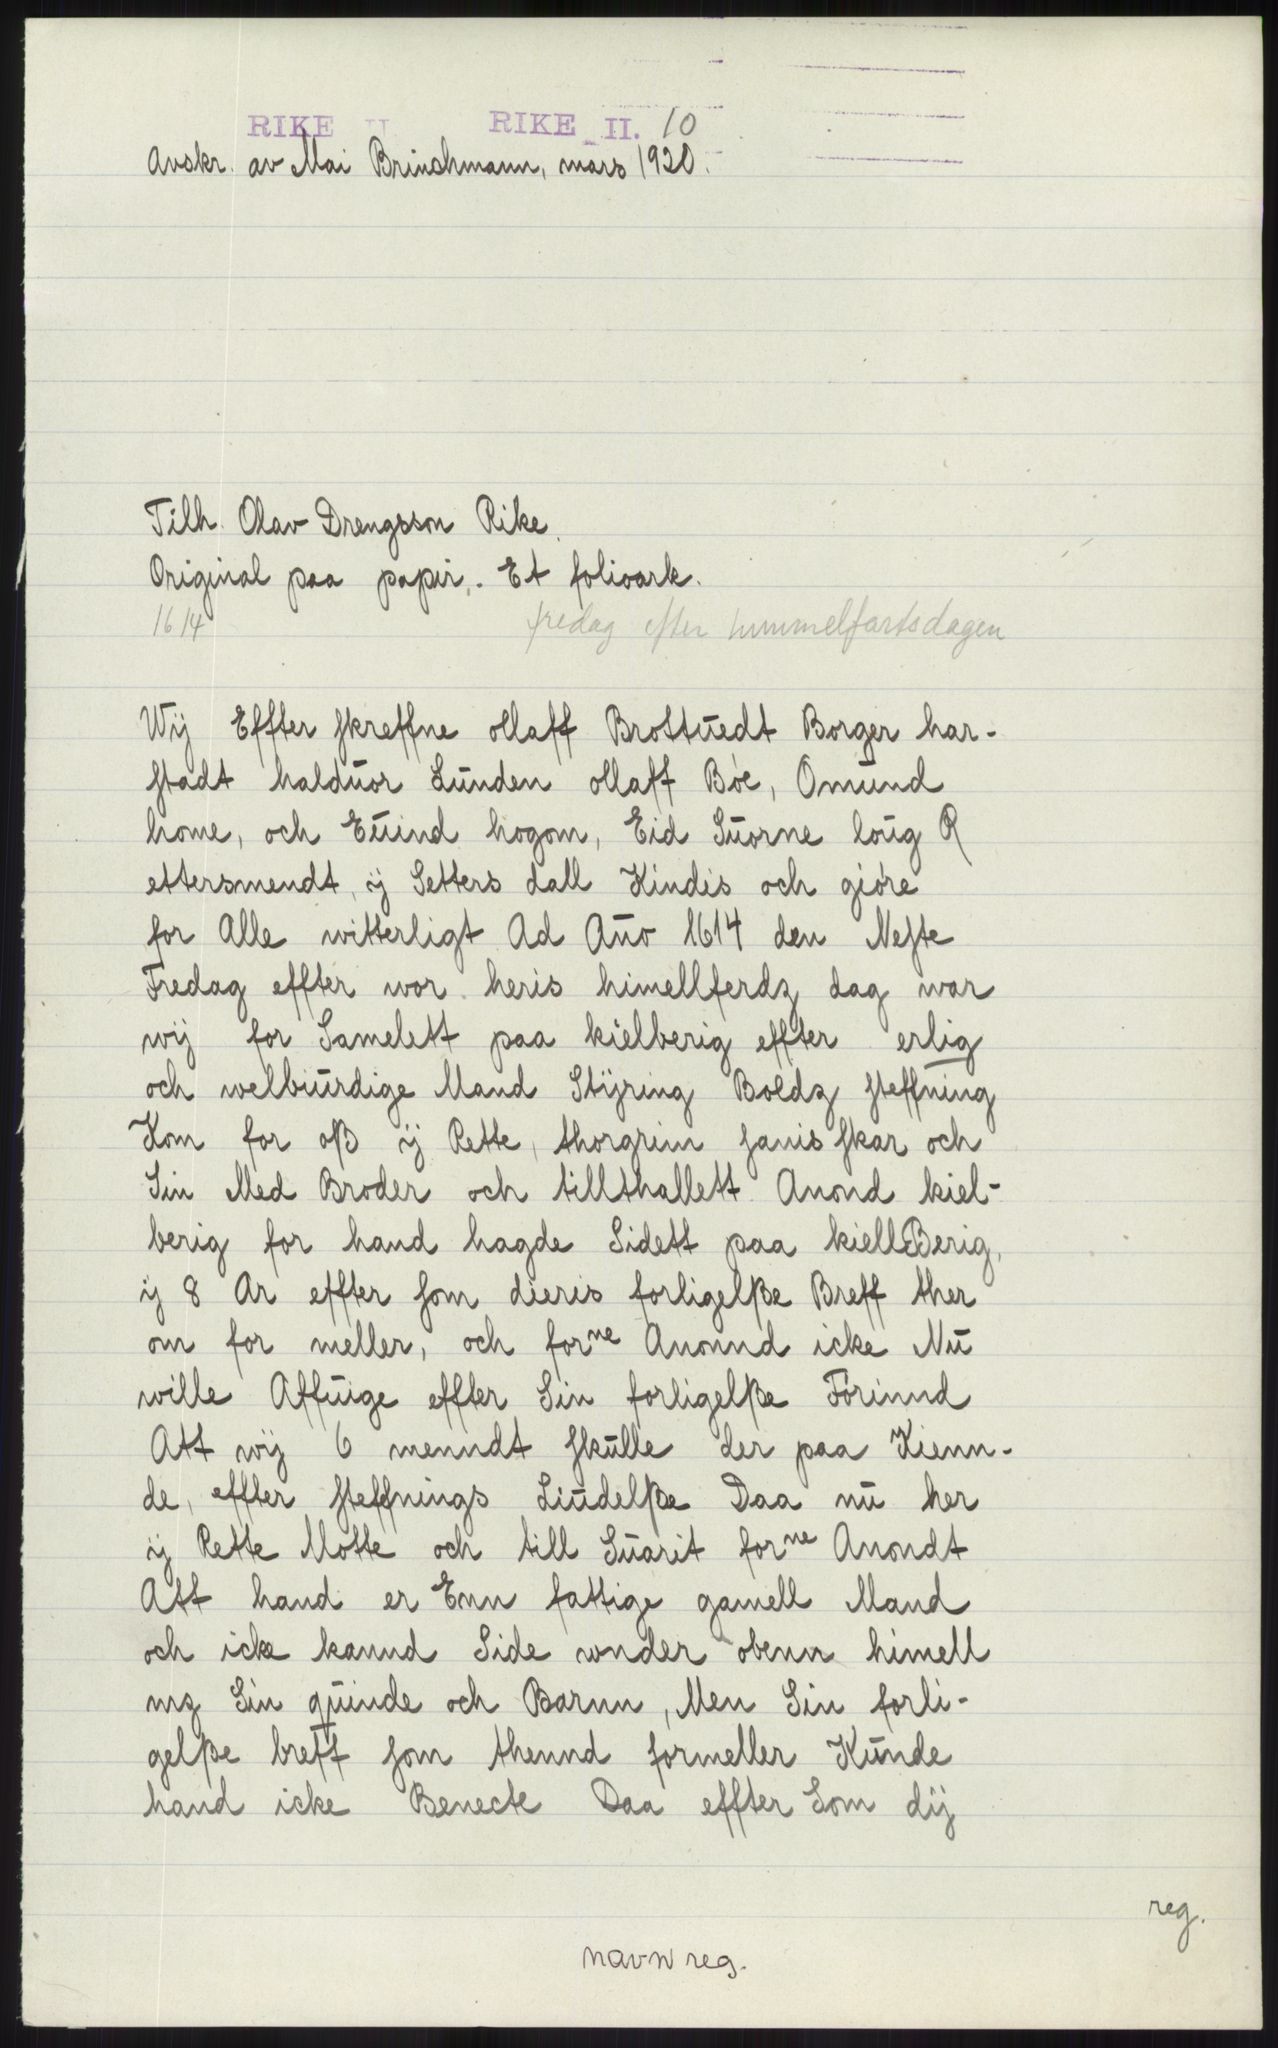 RIKE II RIKE II. 10
Avskr. av Mai Brinchmann, mars 1920.
Tilh. Olav Drengsson Rike.
Original paa papir. Et folioark.
1614 fredag efter himmelfartsdagen
Wij Effter skreffne ollaff Brottuedt Borger har-
stadt halduor Lunden ollaff Bøe, Omund
home, och Euind hogom, Eid Suorne loug R
ettersmendt, ij Setters dall Kindis och giøre
for Alle witterligt Ad Año 1614 den Neste
Fredag effter wor heris himellferdz dag war
wij for Samelett paa kielberig effter erlig
och welbiurdige Mand Stijring Boldz steffning
Kom for oß ij Rette, thorgrim janis skar och
Sin Med Broder och tillthallett Anond kiel-
berig for hand hagde Sidett paa kiellBerig,
ij 8 Ar effter som dieris forligelße Breff ther
om for meller, och forne Anonnd icke Nu
wille Affuige effter Sin forligelße Forinnd
Att wij 6 menndt skulle der paa Kienn-
de, effter steffnings Liudelße Daa nu her
ij Rette Motte och till Suarit forne Anondt
Att hand er Enn fattige gamell Mand
och icke kannd Side wnder obenn himell
mz Sin quinde och Barnn, Men Sin forli-
gelße breff som thennd formeller Kunde
hand icke Benecte Daa effter Som dij
reg.
navn reg.